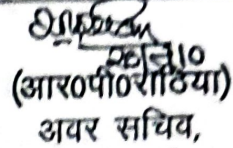 (आर०पी०राठिया)
अवर सचिव,